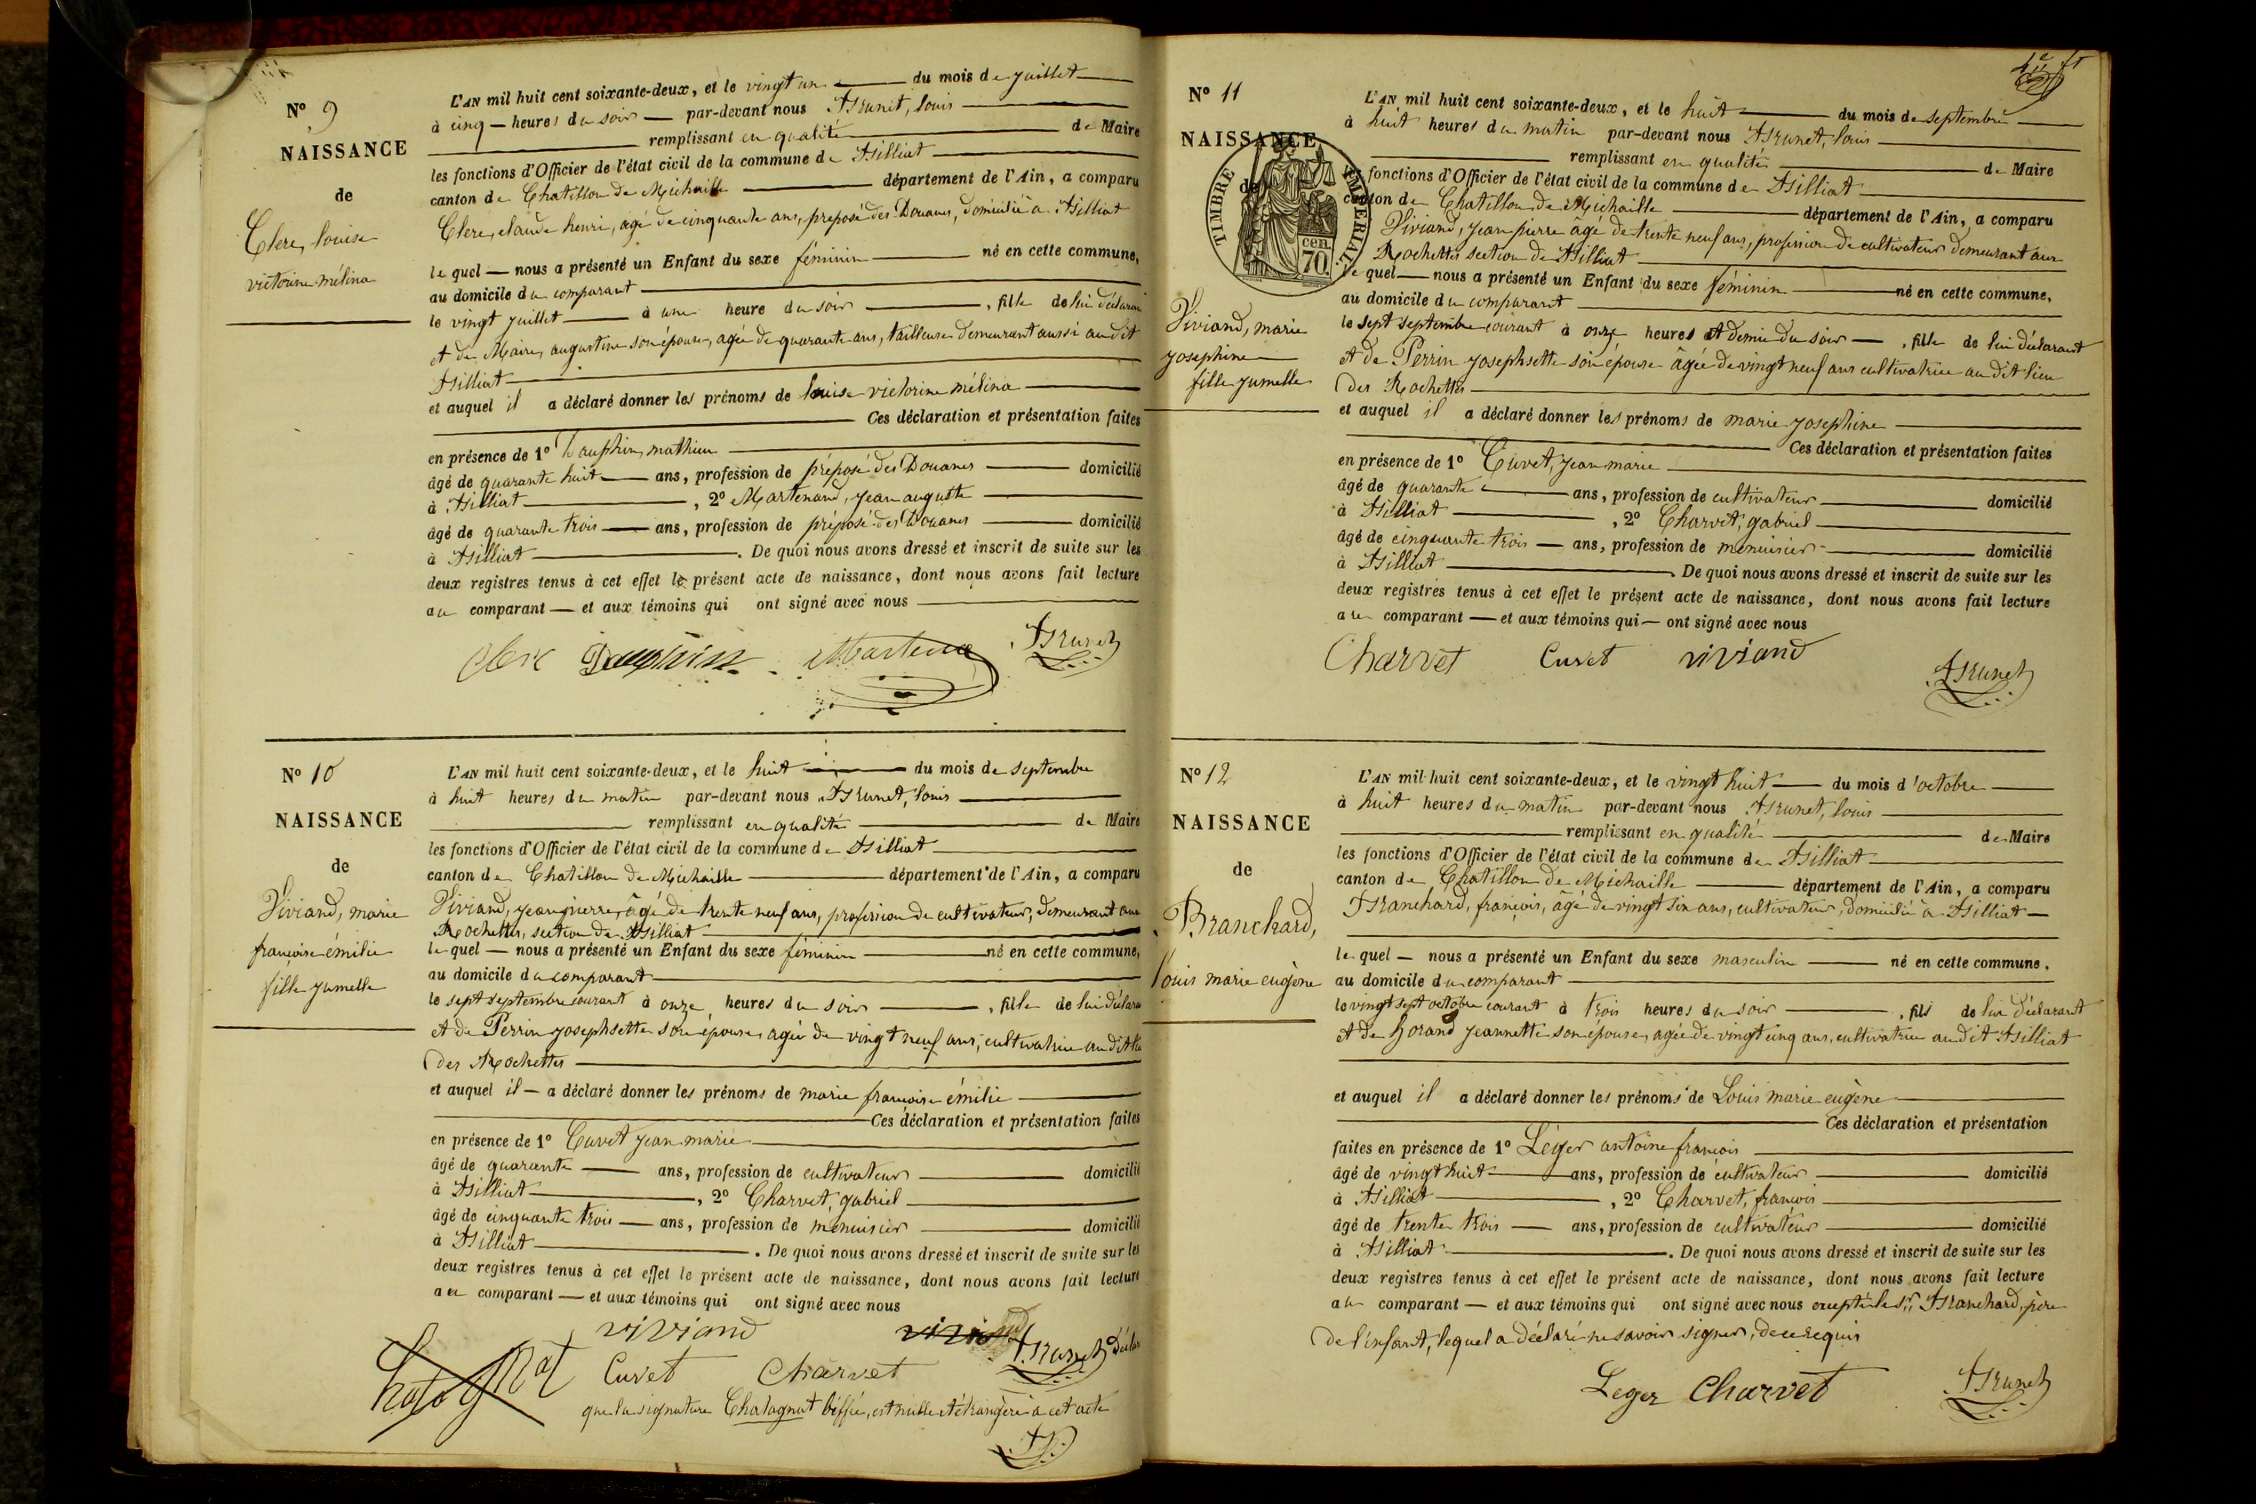 N° 9
NAISSANCE
de
Clerc, louise
victorine mélina
L'AN mil huit cent soixante-deux, et le vingt un du mois de juillet
à cinq heures du soir par-devant nous Brunet, louis
remplissant en qualité de Maire
les fonctions d'Officier de l'état civil de la commune de Billiat
canton de Chatillon de Michaille département de l'Ain, a comparu
Clerc, claude henri, agé de cinquante ans, préposé des Douanes, domicilié à Billiat
le quel nous a présenté un Enfant du sexe féminin né en cette commune,
au domicile du comparant
le vingt juillet à une heure du soir , fille de lui déclarant
et de Maire, augustine son épouse, agée de quarante ans, tailleuse demeurant aussi au dit
Billiat
et auquel il a déclaré donner les prénoms de louise victorine mélina
Ces déclaration et présentation faites
en présence de 1° Dauphin, mathieu
âgé de quarante huit ans, profession de préposé des Douanes domicilié
à Billiat , 2° Martenand, jean auguste
âgé de quarante trois ans, profession de préposé des Douanes domicilié
à Billiat . De quoi nous avons dressé et inscrit de suite sur les
deux registres tenus à cet effet le présent acte de naissance, dont nous avons fait lecture
au comparant et aux témoins qui ont signé avec nous
Clerc Dauphin Brunet
N° 10
NAISSANCE
de
Viviand, marie
françoise émilie
fille jumelle
L'AN mil huit cent soixante-deux, et le huit du mois de septembre
à huit heures du matin par-devant nous Brunet, louis
remplissant en qualité de Maire
les fonctions d'Officier de l'état civil de la commune de Billiat
canton de Chatillon de Michaille département de l'Ain, a comparu
Viviand, jean pierre, âgé de trente neuf ans, profession de cultivateur, demeurant aux
Rochettes, section de Billiat
le quel nous a présenté un Enfant du sexe féminin né en cette commune,
au domicile du comparant
le sept septembre courant à onze heures du soir , fille de lui déclarant
et de Perrin josephsette son épouse, agée de vingt neuf ans, cultivatrice au dit lieu
des Rochettes
et auquel il a déclaré donner les prénoms de marie françoise émilie
Ces déclaration et présentation faites
en présence de 1° Cuvet jean marie
âgé de quarante ans, profession de cultivateur domicilié
à Billiat , 2° Charvet, gabriel
âgé de cinquante trois ans, profession de menuisier domicilié
à Billiat . De quoi nous avons dressé et inscrit de suite sur les
deux registres tenus à cet effet le présent acte de naissance, dont nous avons fait lecture
au comparant et aux témoins qui ont signé avec nous
viviand
Cuvet Charvet Brunet
que la signature Chatagnat biffée, est nulle et étrangère à cet acte
N° 11
NAISSANCE
de
TIMBRE IMPERIAL
70 cen.
Viviand, marie
josephine
fille jumelle
L'AN mil huit cent soixante-deux, et le huit du mois de septembre
à huit heures du matin par-devant nous Brunet, louis
remplissant en qualité de Maire
fonctions d'Officier de l'état civil de la commune de Billiat
canton de Chatillon de Michaille département de l'Ain, a comparu
Viviand, jean pierre âgé de trente neuf ans, profession de cultivateur demeurant aux
Rochettes section de Billiat
le quel nous a présenté un Enfant du sexe féminin né en cette commune,
au domicile du comparant
le sept septembre courant à onze heures et demie du soir , fille de lui déclarant
et de Perrin josephsette son épouse âgée de vingt neuf ans cultivatrice au dit lieu
des Rochettes
et auquel il a déclaré donner les prénoms de marie josephine
Ces déclaration et présentation faites
en présence de 1° Cuvet, jean marie
âgé de quarante ans, profession de cultivateur domicilié
à Billiat , 2° Charvet, gabriel
âgé de cinquante trois ans, profession de menuisier domicilié
à Billiat . De quoi nous avons dressé et inscrit de suite sur les
deux registres tenus à cet effet le présent acte de naissance, dont nous avons fait lecture
au comparant et aux témoins qui ont signé avec nous
Charvet Cuvet viviand
Brunet
N° 12
NAISSANCE
de
Branchard,
louis marie eugène
L'AN mil huit cent soixante-deux, et le vingt huit du mois d'octobre
à huit heures du matin par-devant nous Brunet, louis
remplissant en qualité de Maire
les fonctions d'Officier de l'état civil de la commune de Billiat
canton de Chatillon de Michaille département de l'Ain, a comparu
Branchard, françois, âgé de vingt six ans, cultivateur, domicilié à Billiat
le quel nous a présenté un Enfant du sexe masculin né en cette commune,
au domicile du comparant
le vingt sept octobre courant à trois heures du soir , fils de lui déclarant
et de Gorand jeannette son épouse, agée de vingt cinq ans, cultivatrice au dit Billiat
et auquel il a déclaré donner les prénoms de Louis marie eugène
Ces déclaration et présentation
faites en présence de 1° Léger antoine françois
âgé de vingt huit ans, profession de cultivateur domicilié
à Billiat , 2° Charvet, françois
âgé de trente trois ans, profession de cultivateur domicilié
à Billiat . De quoi nous avons dressé et inscrit de suite sur les
deux registres tenus à cet effet le présent acte de naissance, dont nous avons fait lecture
au comparant et aux témoins qui ont signé avec nous excepté le Sr Branchard, père
de l'enfant, lequel a déclaré ne savoir signer, de ce requis
Leger Charvet Brunet